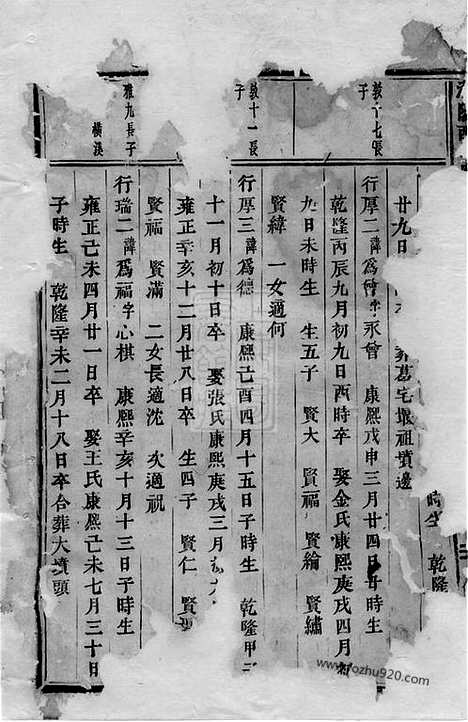 廿九日
葬葛宅堰祖墳邊
時生 乾隆
教十七長子
行厚二諱爲曾字永曾 康熙戊申三月廿四日廿時生
乾隆丙辰九月初九日酉時卒 娶金氏康熙庚戌四月初
九日未時生 生五子 賢大 賢福 賢綸 賢繡
賢緯 一女適何
教十一長子
行厚三諱爲德 康熙己酉四月十五日子時生 乾隆甲子
十一月初十日卒 娶張氏康熙庚戌三月初九
雍正辛亥十二月廿八日卒 生四子 賢仁 賢
賢福 賢滿 二女長適沈 次適祝
雅九長子 橫溪
行瑞二諱爲福字心棋 康熙辛亥十月十三日子時生
雍正己未四月廿一日卒 娶王氏康熙己未七月三十日
子時生 乾隆辛未二月十八日卒合葬大墳頭
www.yozhu920.com